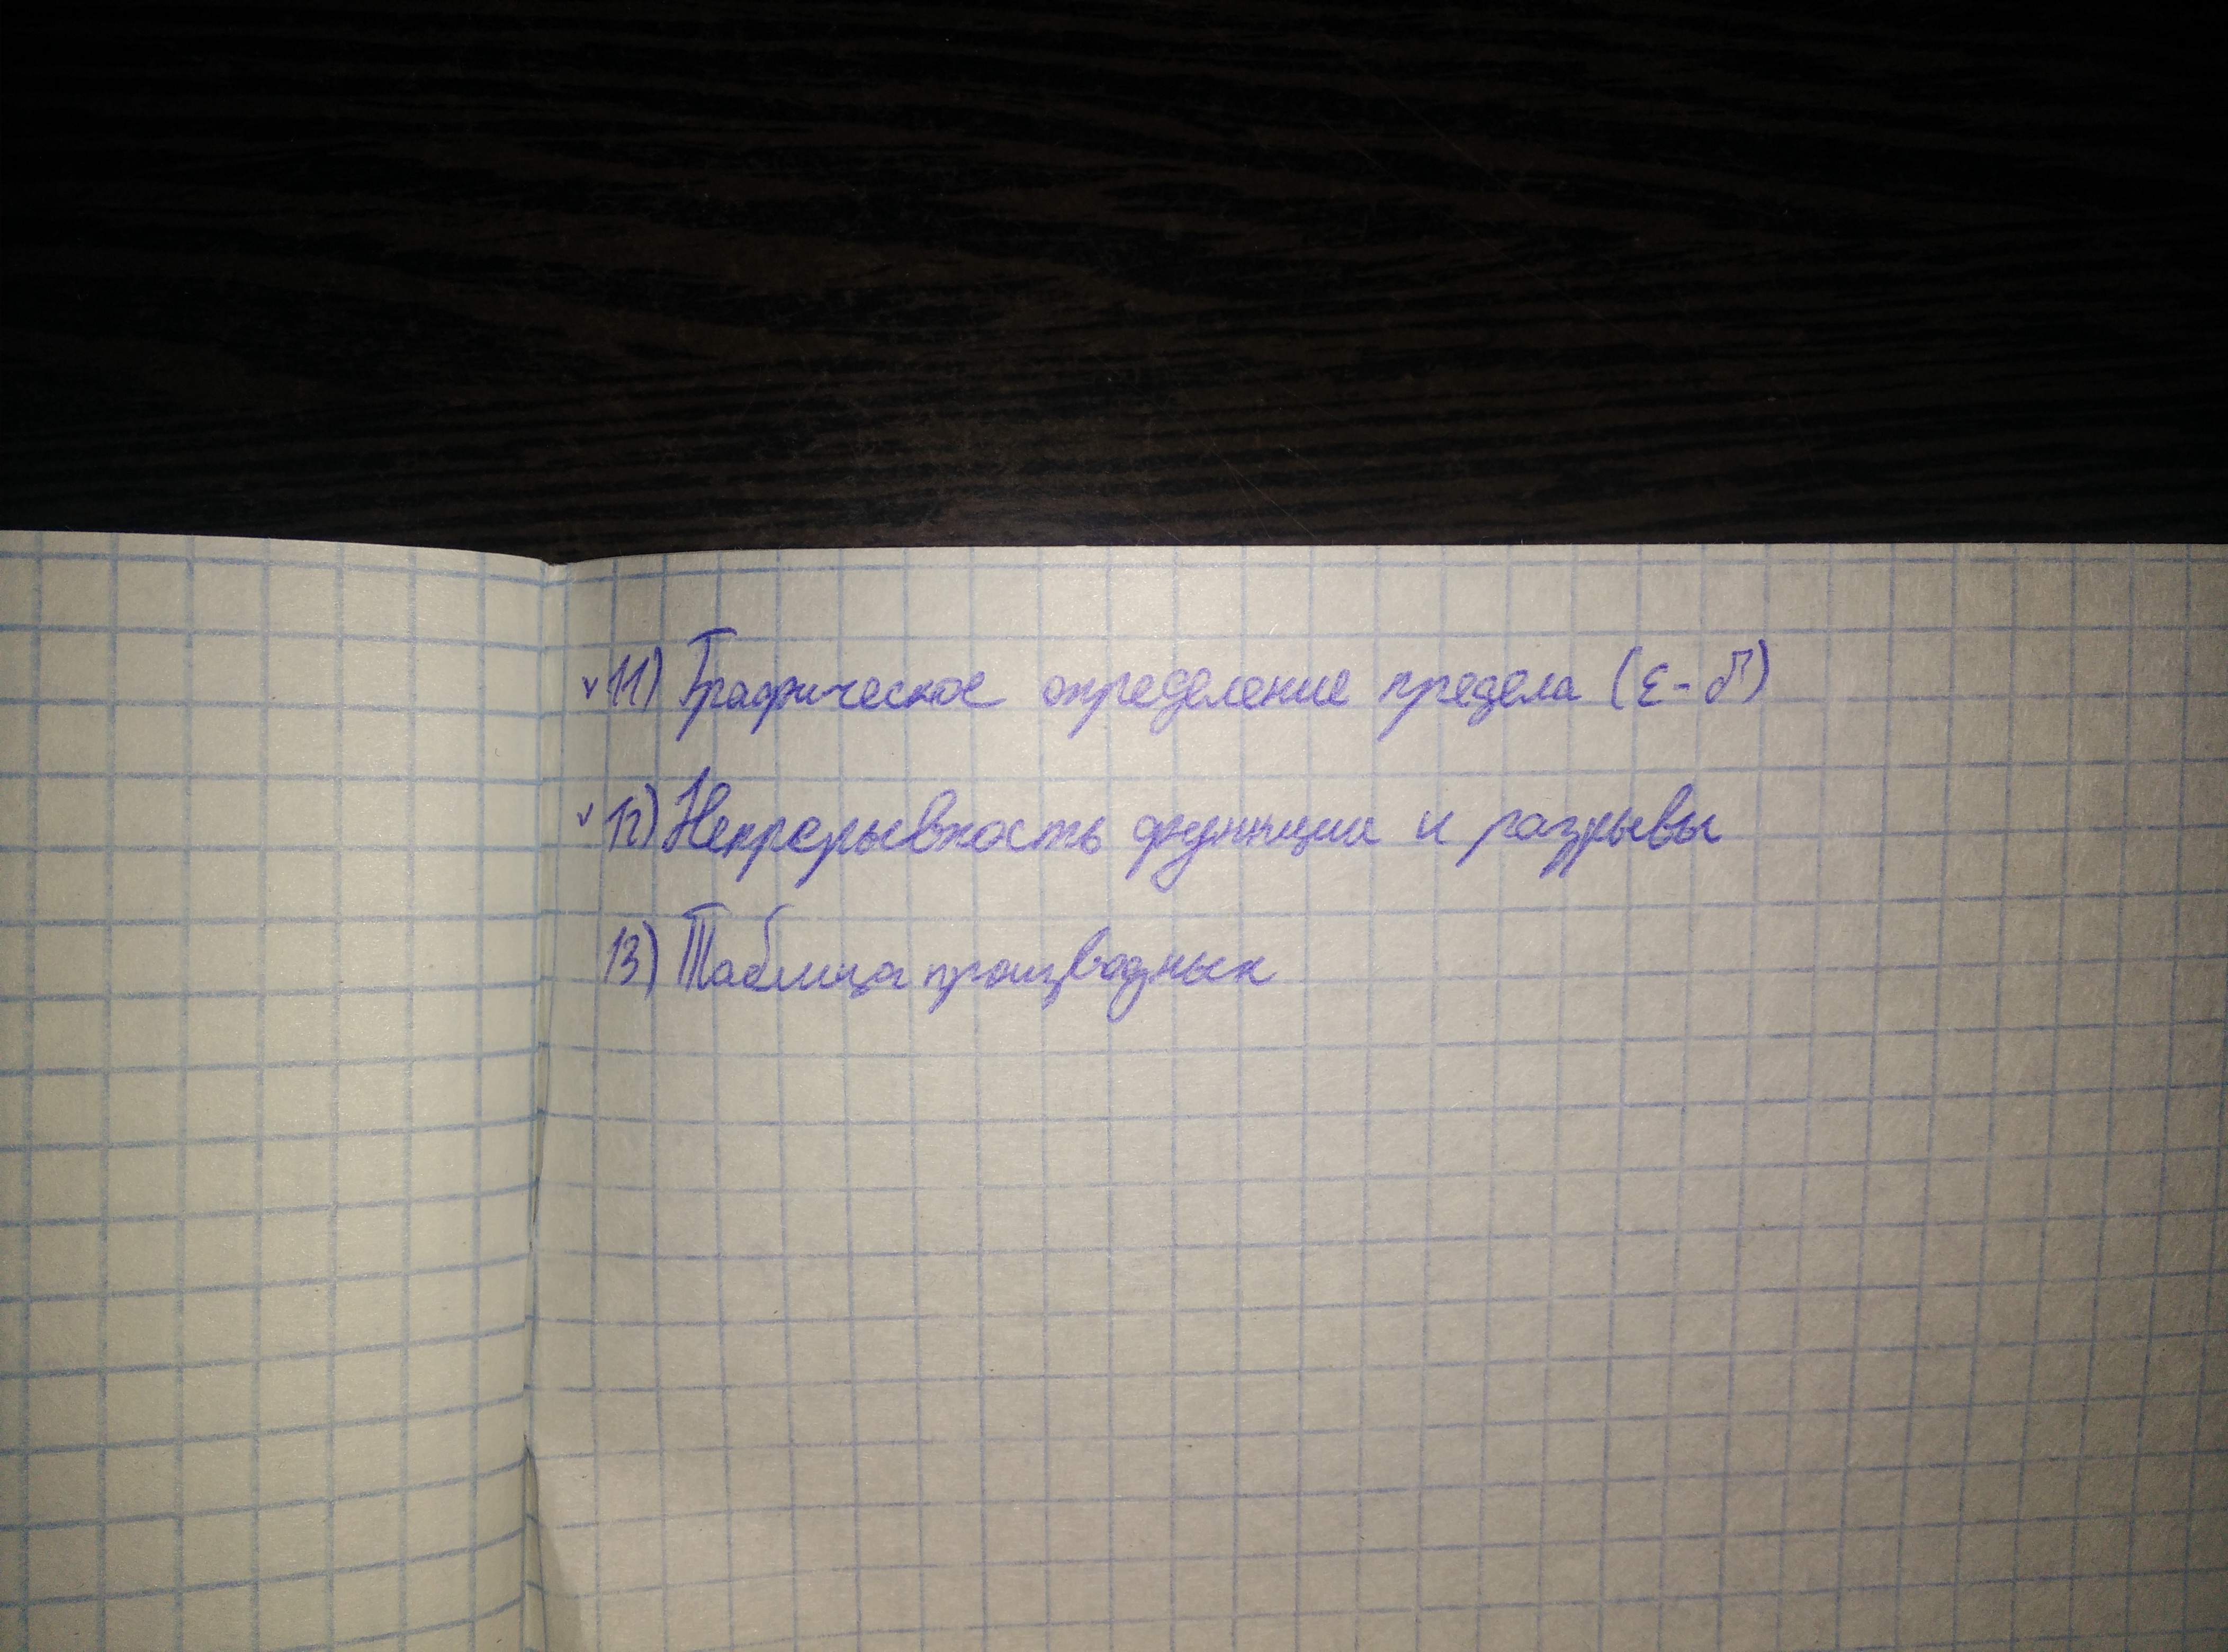 ✓ 11) Графическое определение предела (ε-δ)
✓ 12) Непрерывность функции и разрывы
13) Таблица производных